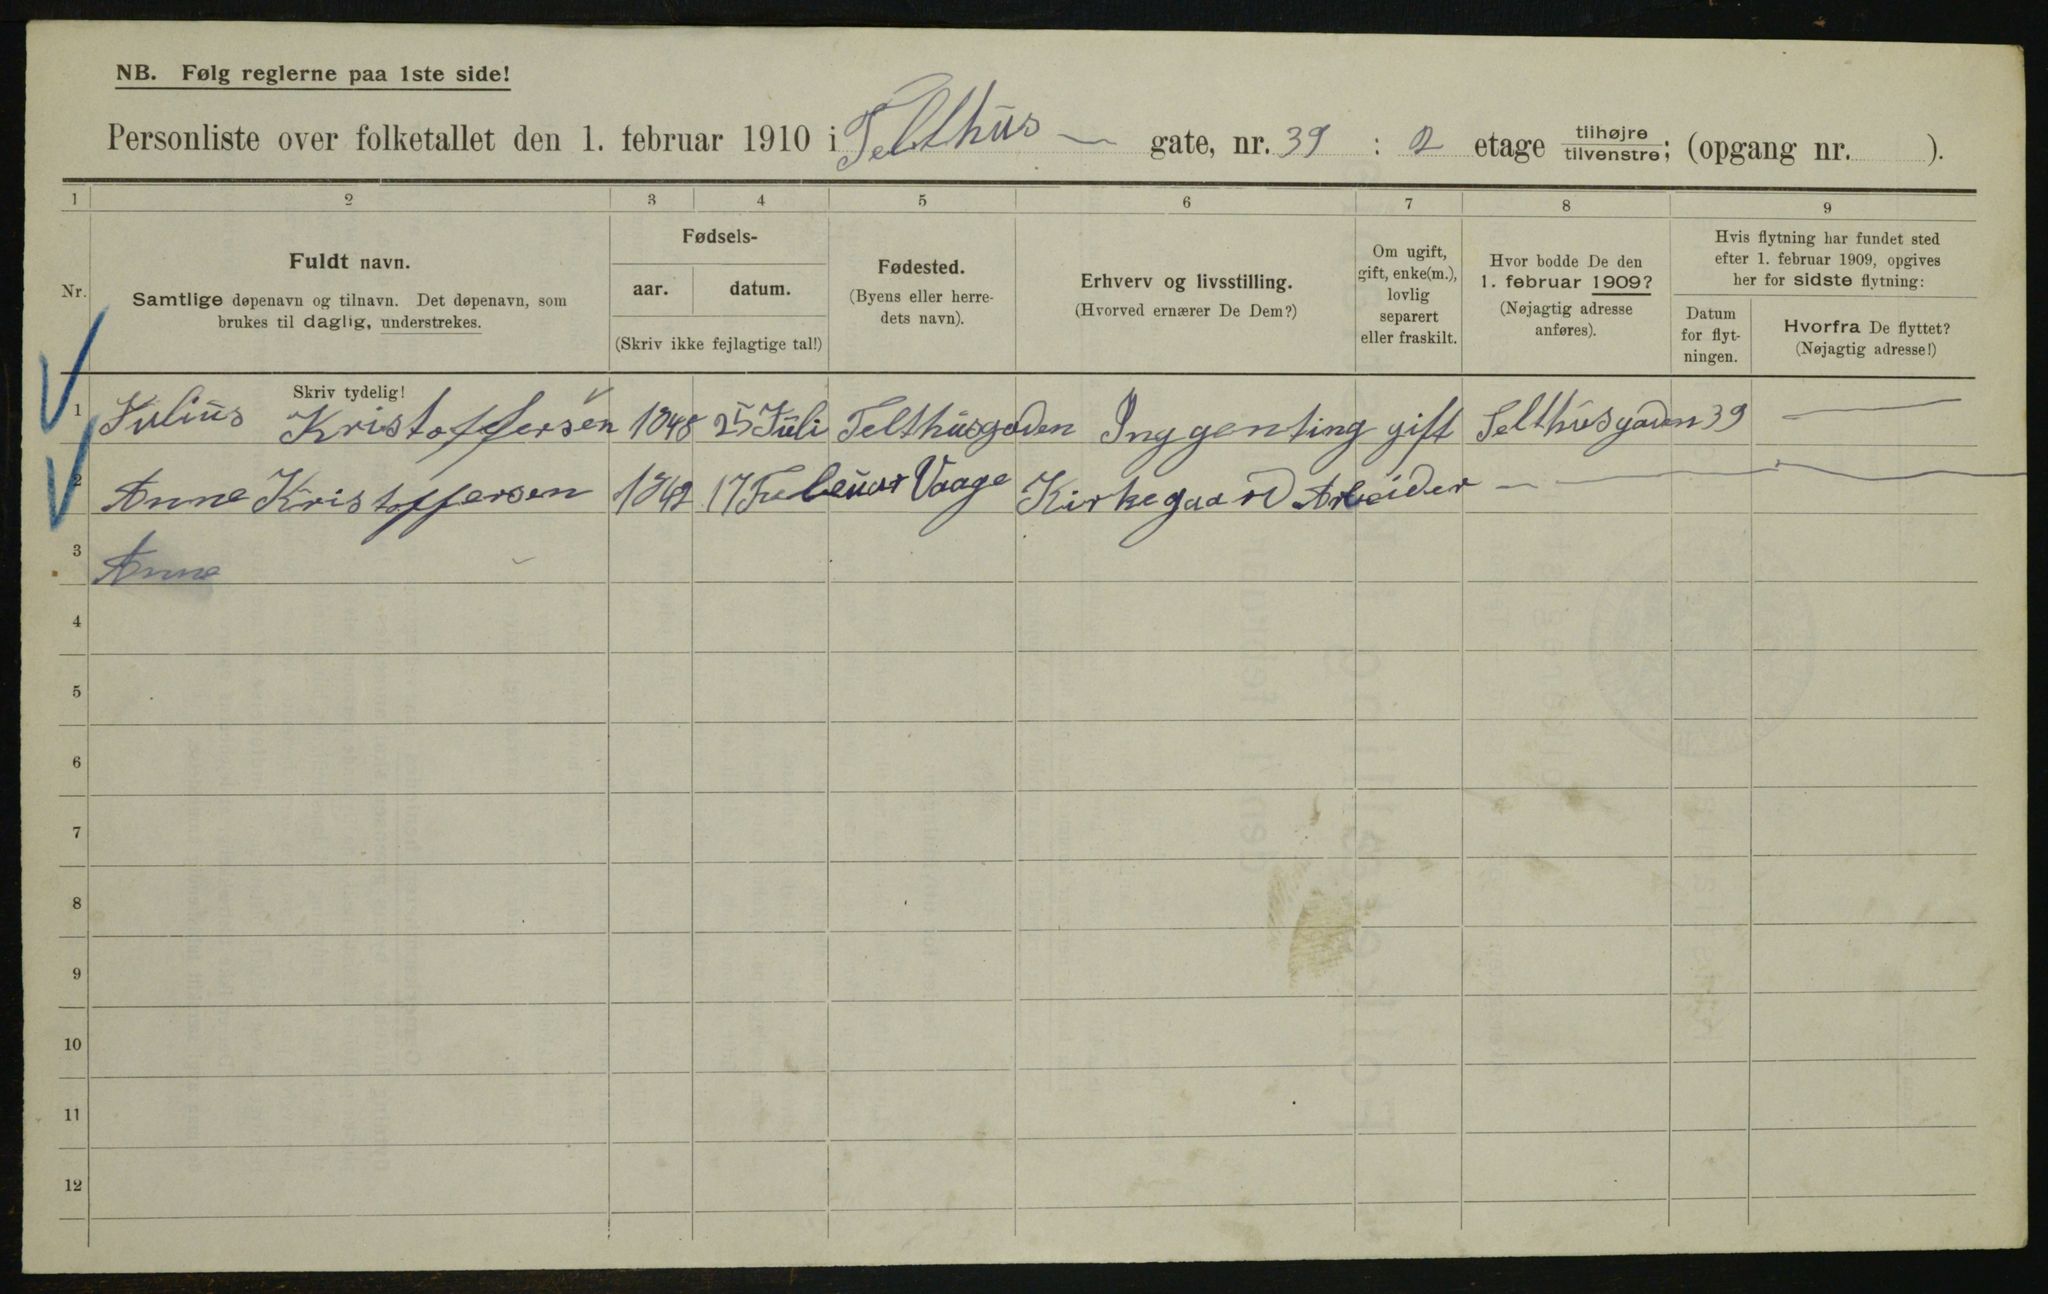 NB. Følg reglerne paa 1ste side!
Personliste over folketallet den 1. februar 1910 i Telthus gate, nr. 39 : 2 etage tilhøjre/tilvenstre; (opgang nr. ).
1 2 3 4 5 6 7 8 9
Nr.
Fuldt navn.
Samtlige døpenavn og tilnavn. Det døpenavn, som
brukes til daglig, understrekes.
Skriv tydelig!
Fødsels-
aar. datum.
(Skriv ikke fejlagtige tal!)
Fødested.
(Byens eller herre-
dets navn).
Erhverv og livsstilling.
(Hvorved ernærer De Dem?)
Om ugift,
gift, enke(m.),
lovlig
separert
eller fraskilt.
Hvor bodde De den
1. februar 1909?
(Nøjagtig adresse
anføres).
Hvis flytning har fundet sted
efter 1. februar 1909, opgives
her for sidste flytning:
Datum
for flyt-
ningen.
Hvorfra De flyttet?
(Nøjagtig adresse!)
1 Julius Kristoffersen 1848 25 Juli Telthusgaden Inggenting gift Telthusgaden 39 —
2 Anne Kristoffersen 1842 17 Februar Vaage Kirkegaard Arbeider — —
3 Anne
4
5
6
7
8
9
10
11
12